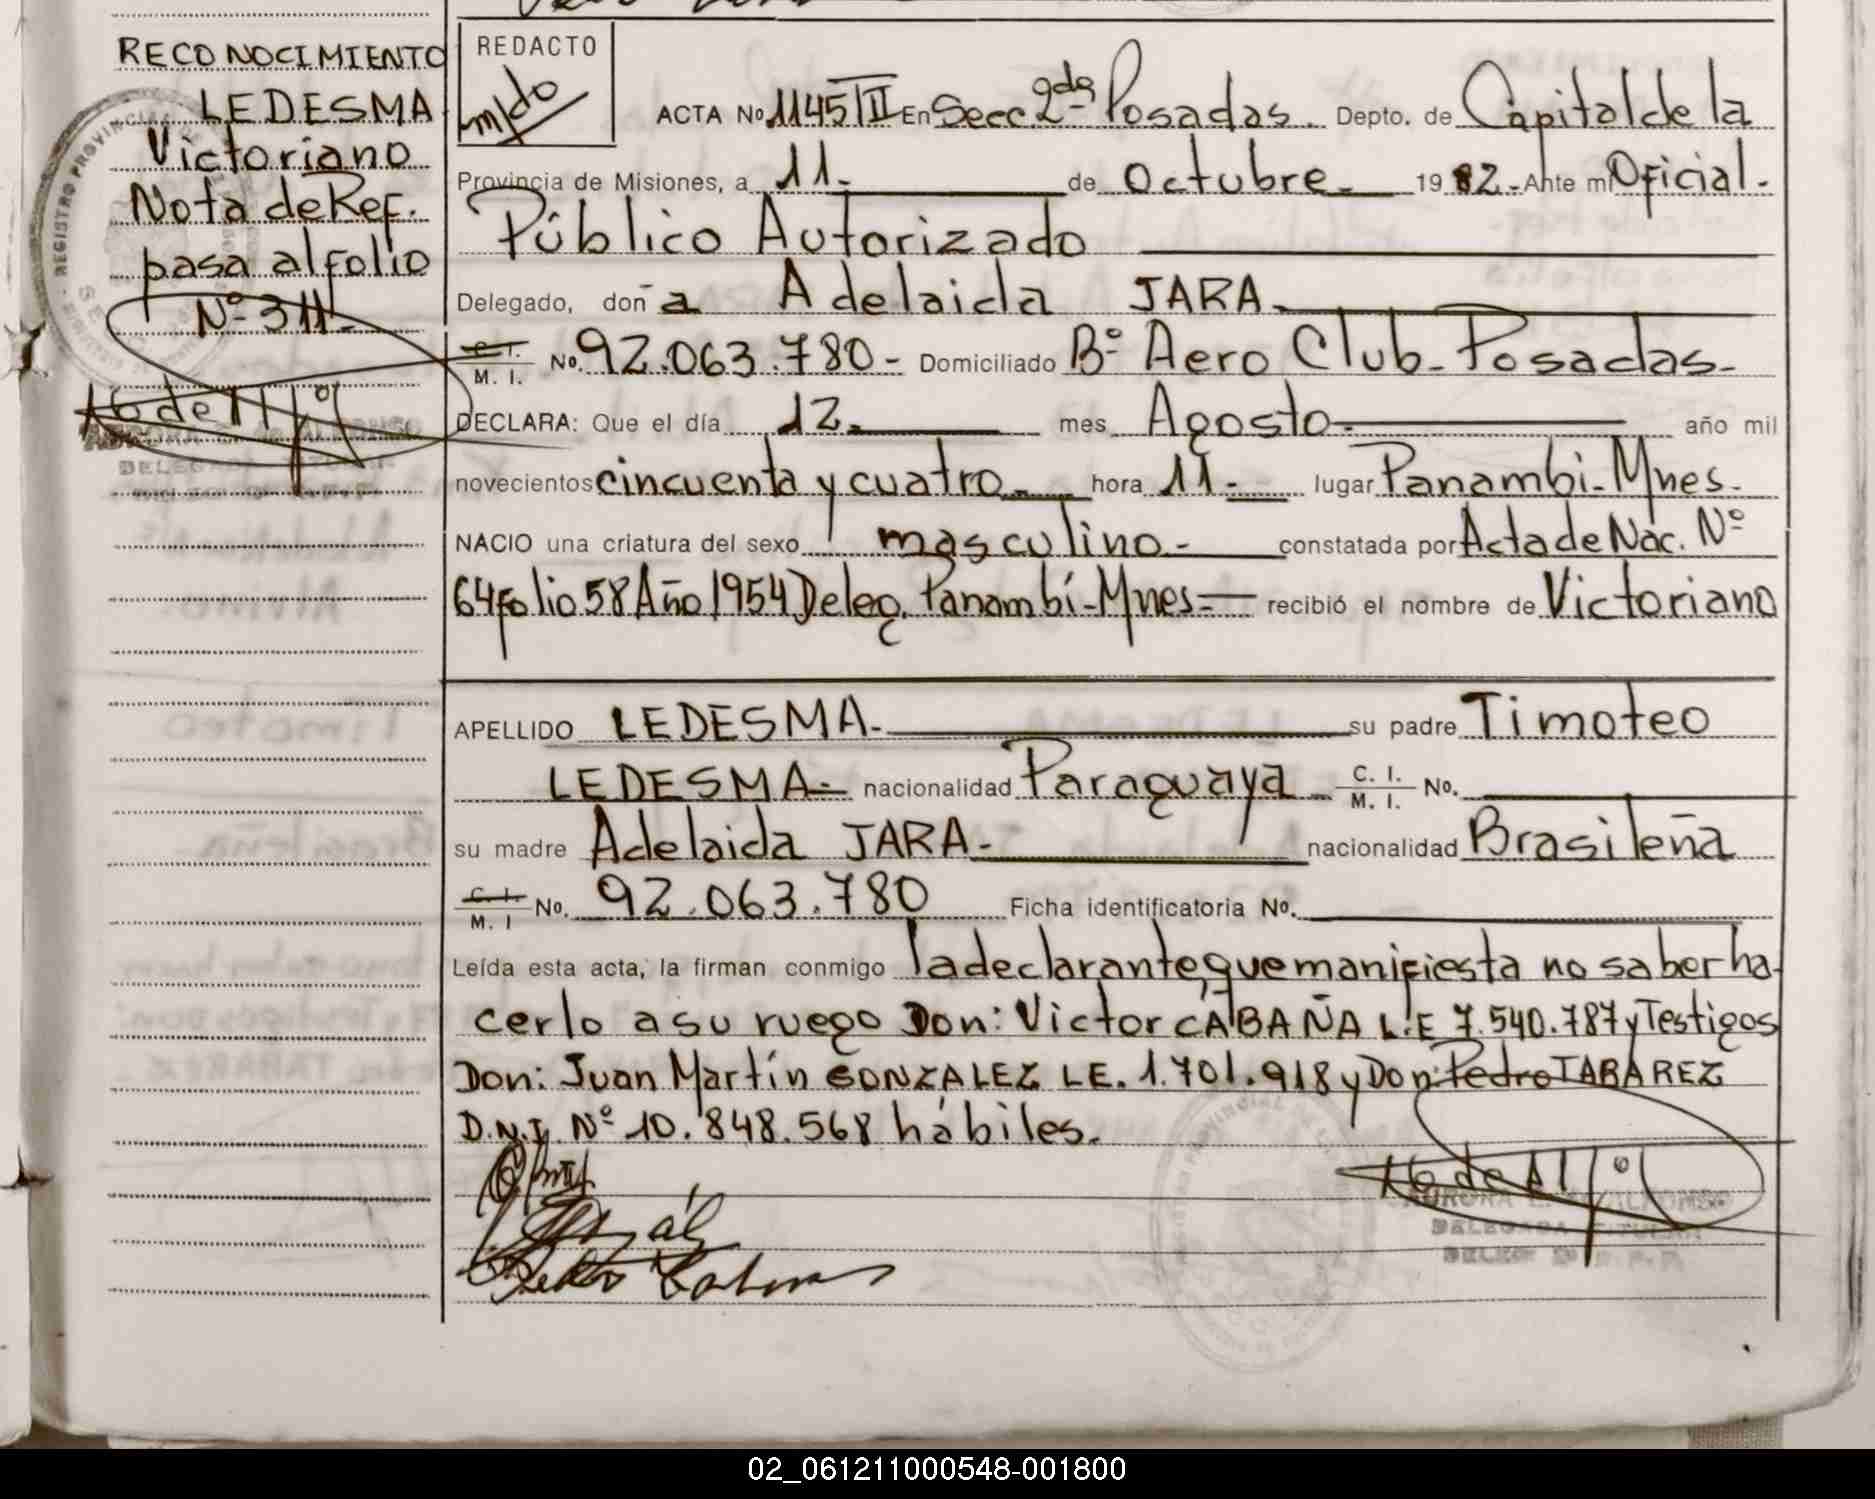 RECONOCIMIENTO
LEDESMA
Victoriano
Nota de Ref.
pasa al folio
Nº 311.-
DELEGADA TITULAR
REDACTO
ACTA No 1145 TII En Secc. 2da Posadas. Depto. de Capital de la
Provincia de Misiones, a 11.- de Octubre.- 1982.- Ante mi Oficial.-
Público Autorizado
Delegado, doña Adelaida JARA.-
C.I. M. I. No. 92.063.780.- Domiciliado Bº Aero Club - Posadas.-
DECLARA: Que el día 12.- mes Agosto.- año mil
novecientos cincuenta y cuatro.- hora 11.- lugar Panambi - Mnes.-
NACIO una criatura del sexo masculino.- constatada por Acta de Nac. Nº
64 folio 58 Año 1954 Deleg. Panambí - Mnes.- recibió el nombre de Victoriano
APELLIDO LEDESMA.- su padre Timoteo
LEDESMA.- nacionalidad Paraguaya.- C. I. M. I. No.
su madre Adelaida JARA.- nacionalidad Brasileña
C. I. M. I No. 92.063.780 Ficha identificatoria No.
Leída esta acta, la firman conmigo la declarante, que manifiesta no saber ha-
cerlo a su ruego Don: Victor CABAÑA L.E 7.540.787 y Testigos
Don: Juan Martín GONZALEZ LE. 1.701.918 y Don: Pedro TABAREZ
D.N.I. Nº 10.848.568 hábiles.
AURORA E. de ALFONSO
DELEGADA TITULAR
02_061211000548-001800